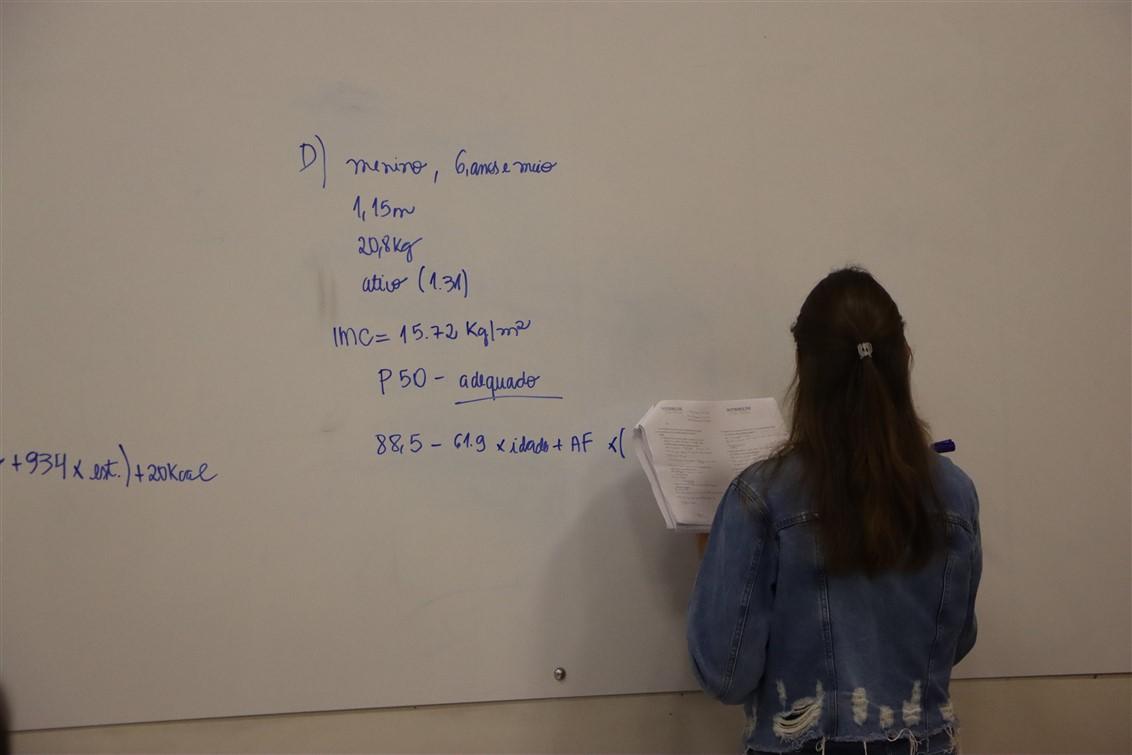 D) menino, 6 anos e meio
1,15m
20,8Kg
ativo (1.31)
IMC = 15.72 Kg/m²
P50 - adequado
88,5 - 61.9 x idade + AF x (
+ 934 x est.) + 20Kcal